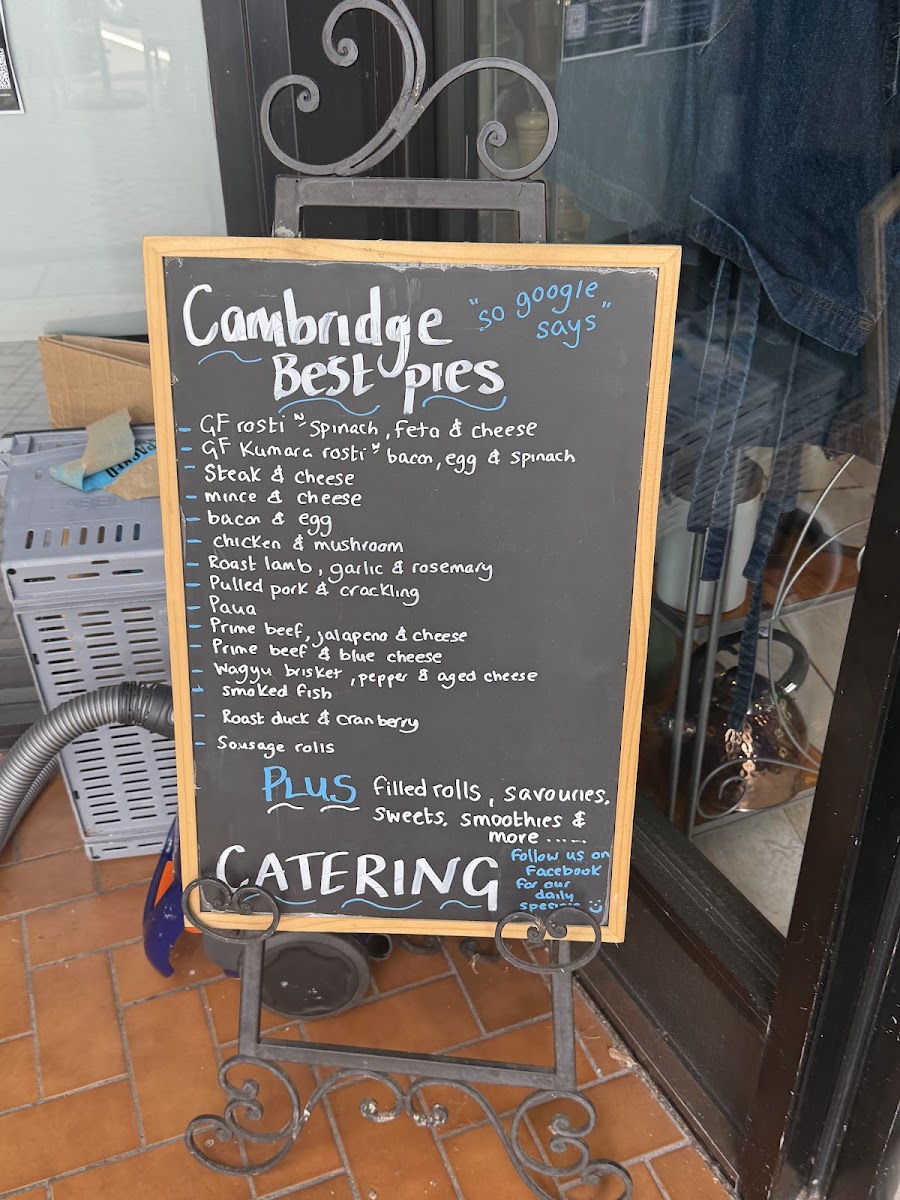 Cambridge "so google says"
Best pies
- GF rosti ~ Spinach, feta & cheese
- GF Kumara rosti ~ bacon, egg & spinach
- Steak & cheese
- mince & cheese
- bacon & egg
- chicken & mushroom
- Roast lamb, garlic & rosemary
- Pulled pork & crackling
- Paua
- Prime beef, jalapeno & cheese
- Prime beef & blue cheese
- Wagyu brisket, pepper & aged cheese
- smoked fish
- Roast duck & cranberry
- Sausage rolls
PLUS filled rolls, savouries,
sweets, smoothies &
more ......
CATERING
Follow us on
Facebook
for our
daily
specials